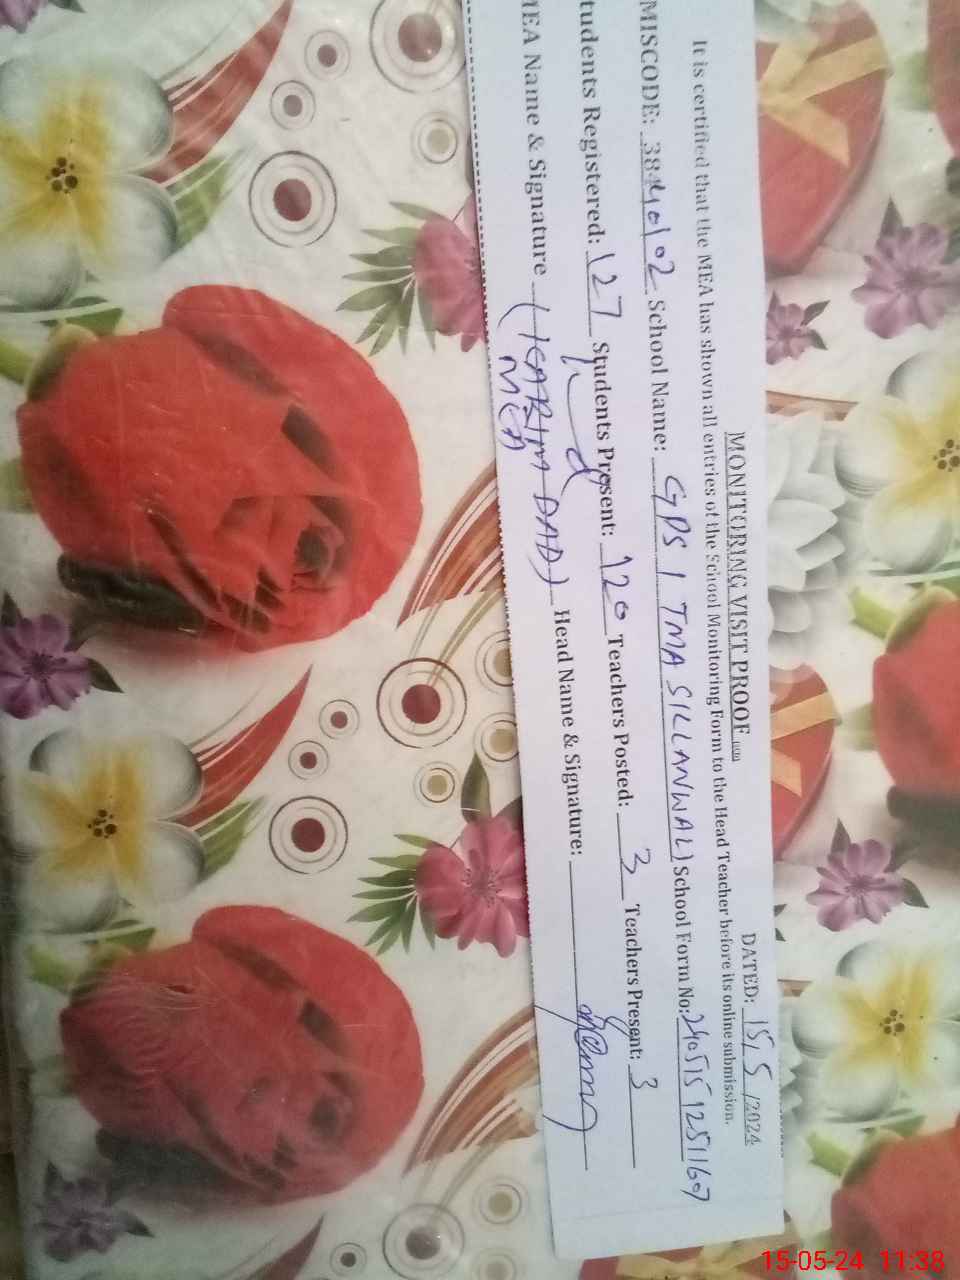 MONITORING VISIT PROOF
DATED: 15/5/2024
It is certified that the MEA has shown all entries of the School Monitoring Form to the Head Teacher before its online submission.
MISCODE: 38440102 School Name: GPS 1 TMA SILLANWALI School Form No: 24051512511607
tudents Registered: 127 Students Present: 120 Teachers Posted: 3 Teachers Present: 3
MEA Name & Signature (KARIM DAD) Head Name & Signature:
MEA
15-05-24 11:38